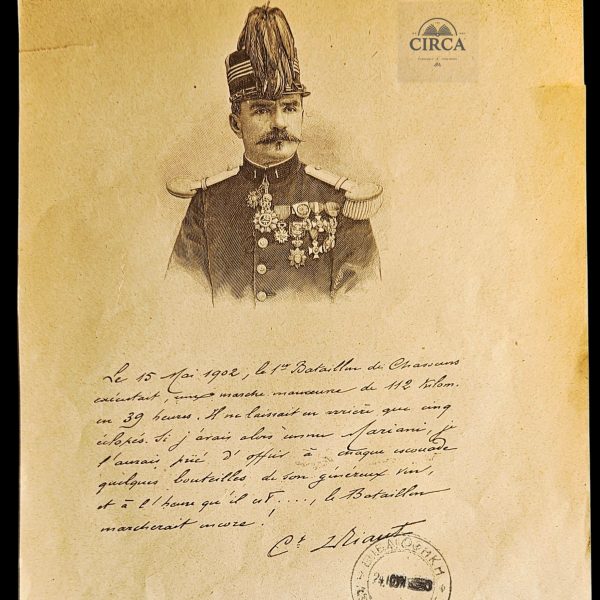 CIRCA
Le 15 Mai 1902, le 1er Bataillon de Chasseurs
exécutait, une marche manœuvre de 112 Kilom.
en 39 heures. Il ne laissait en arrière que cinq
éclopés. Si j'avais alors connu Mariani, je
l'aurais prié d'offrir à chaque escouade
quelques bouteilles de son généreux vin,
et à l'heure qu'il est...., le Bataillon
marcherait encore!
Ct
ΒΙΒΛΙΟΘΗΚΗ